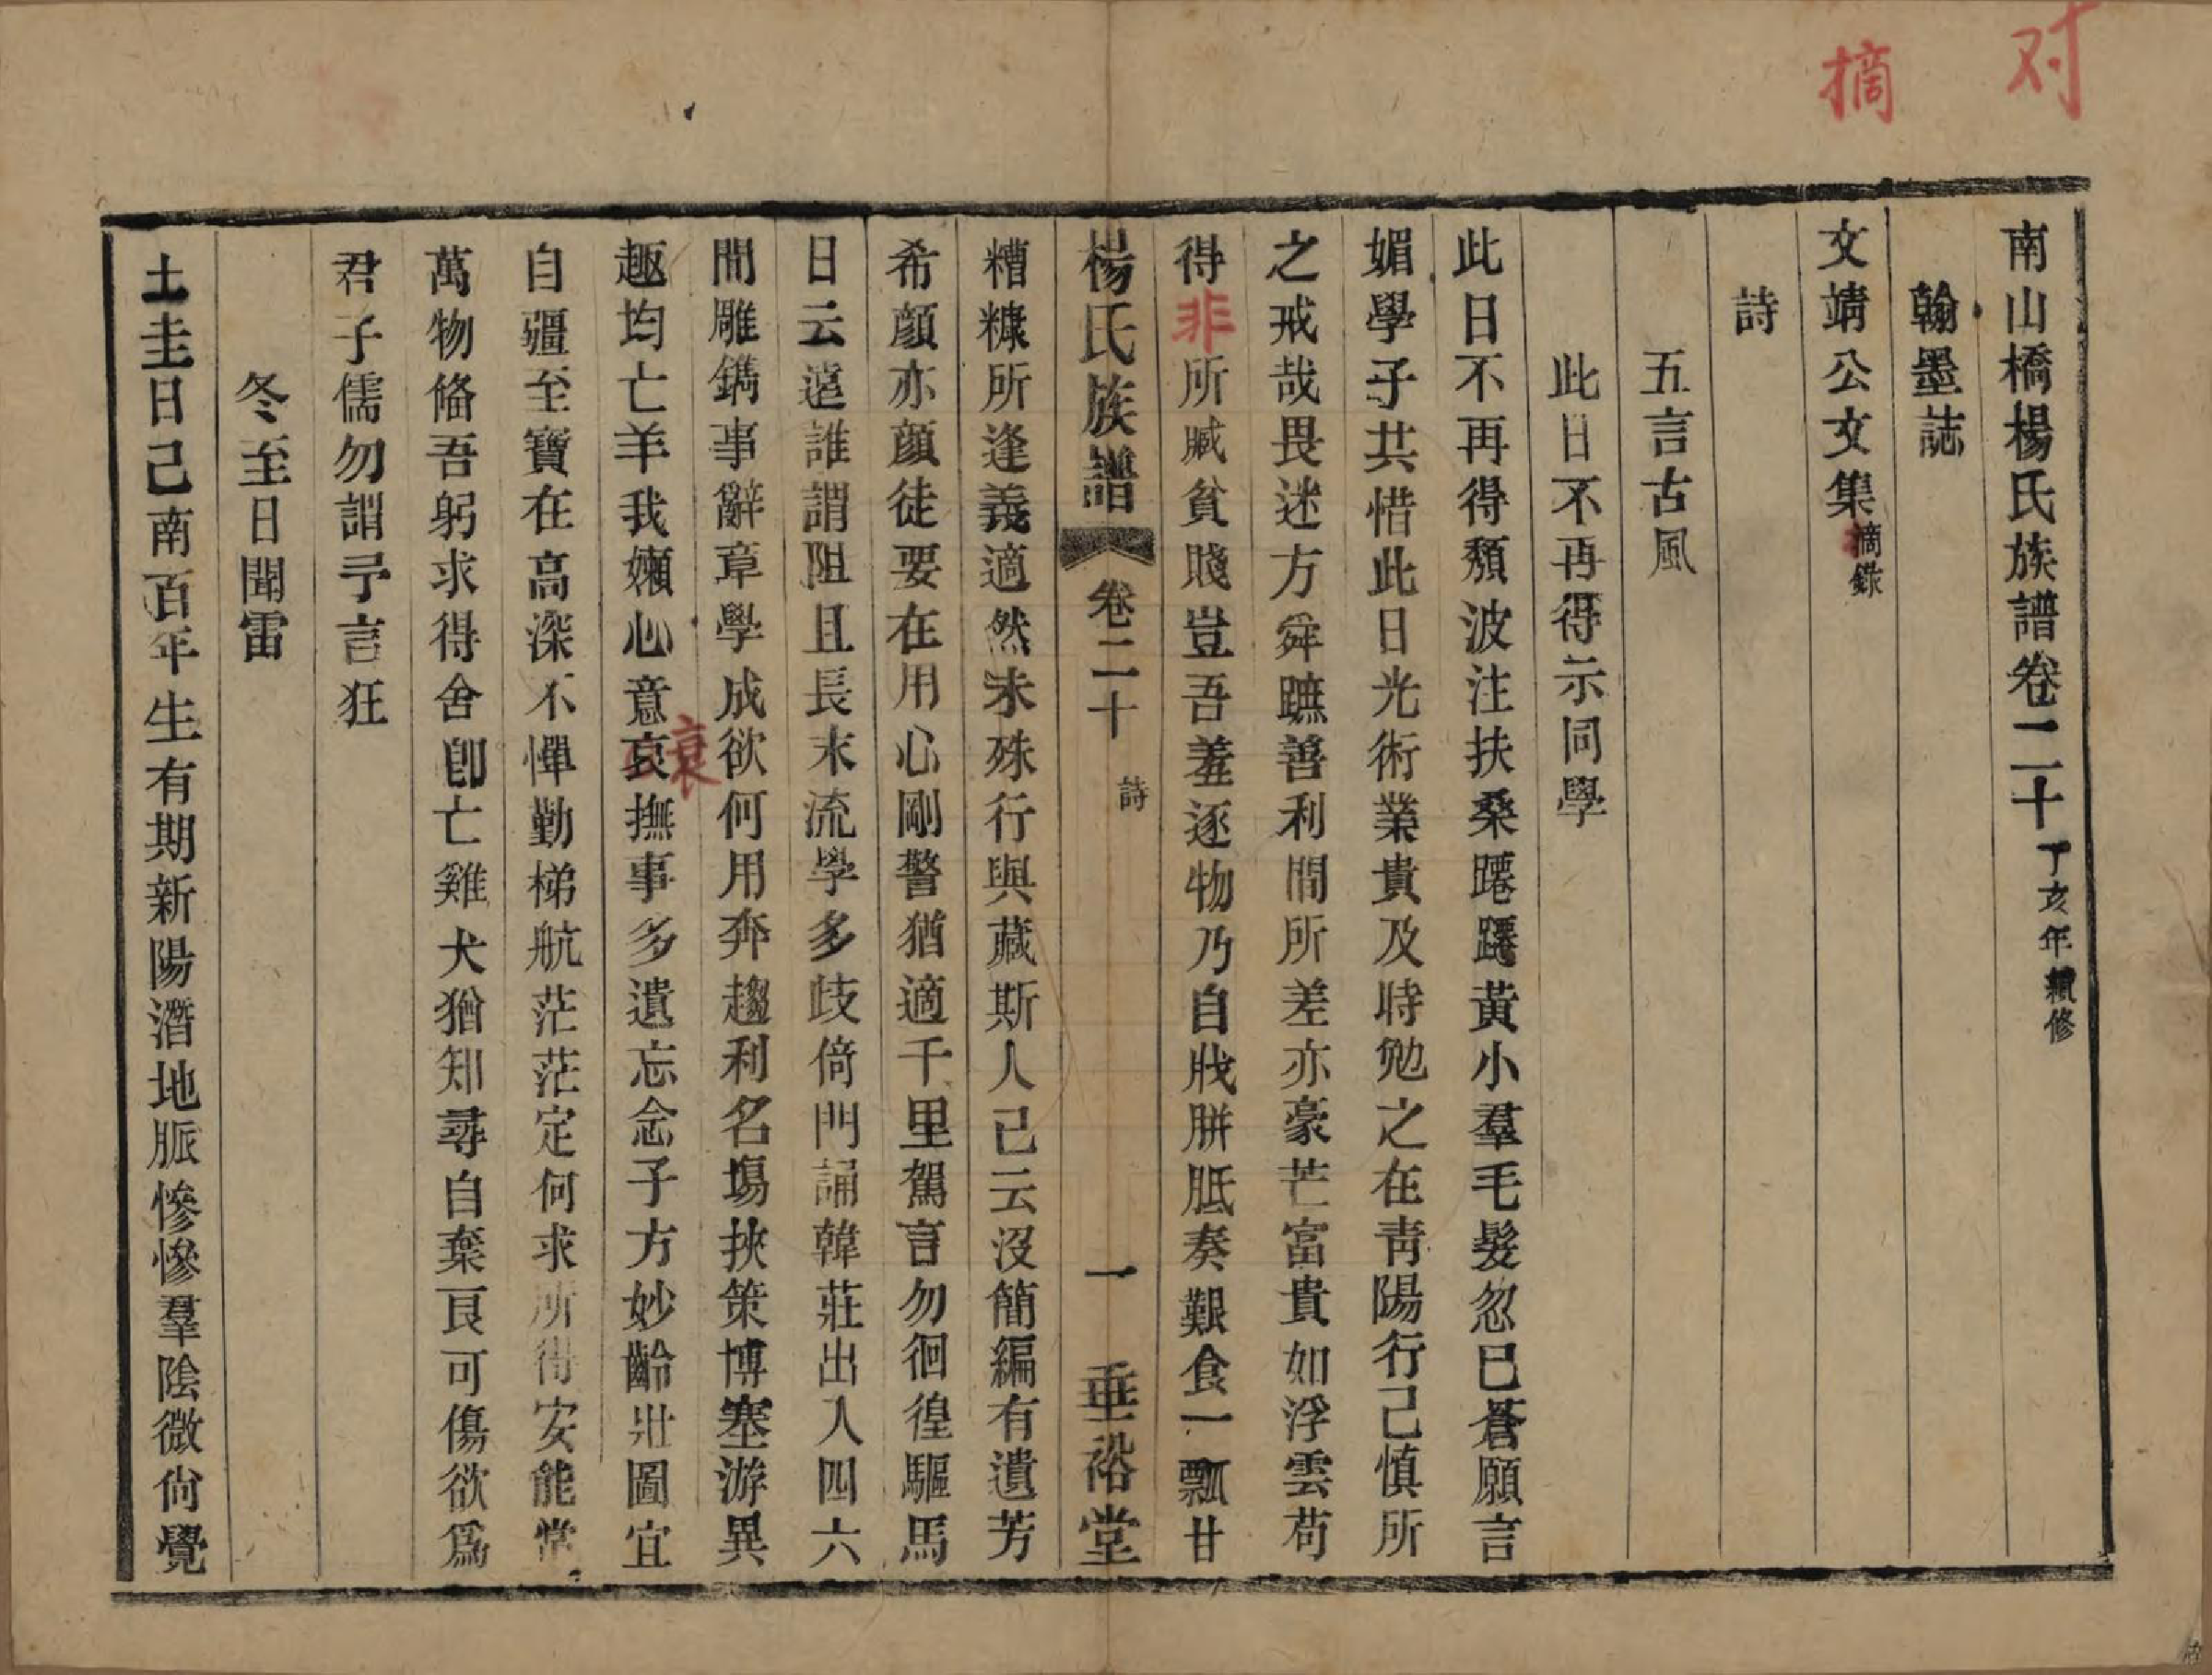 对
摘
南山橋楊氏族譜卷二十丁亥年續修
翰墨誌
文靖公文集摘錄
詩
五言古風
此日不再得示同學
此日不再得頹波注扶桑蹮蹮黃小羣毛髮忽已蒼願言
媚學子共惜此日光術業貴及時勉之在青陽行己慎所
之戒哉畏迷方舜蹠善利間所差亦豪芒富貴如浮雲苟
得非所臧貧賤豈吾羞逐物乃自戕胼胝奏艱食一瓢甘
楊氏族譜 卷二十 詩 一 垂裕堂
糟糠所逢義適然未殊行與藏斯人已云沒簡編有遺芳
希顏亦顏徒要在用心剛警猶適千里駕言勿徊徨驅馬
日云遠誰謂阻且長末流學多歧倚門誦韓莊出入四六
間雕鐫事辭章學成欲何用奔趨利名塲挾策博塞游異
趣均亡羊我嬾心意哀衰撫事多遺忘念子方妙齡壯圖宜
自疆至寶在高深不憚勤梯航茫茫定何求所得安能常
萬物俻吾躬求得舍卽亡雞犬猶知尋自棄良可傷欲爲
君子儒勿謂予言狂
冬至日聞雷
土圭日己南百年生有期新陽潛地脈慘慘羣陰微尙覺